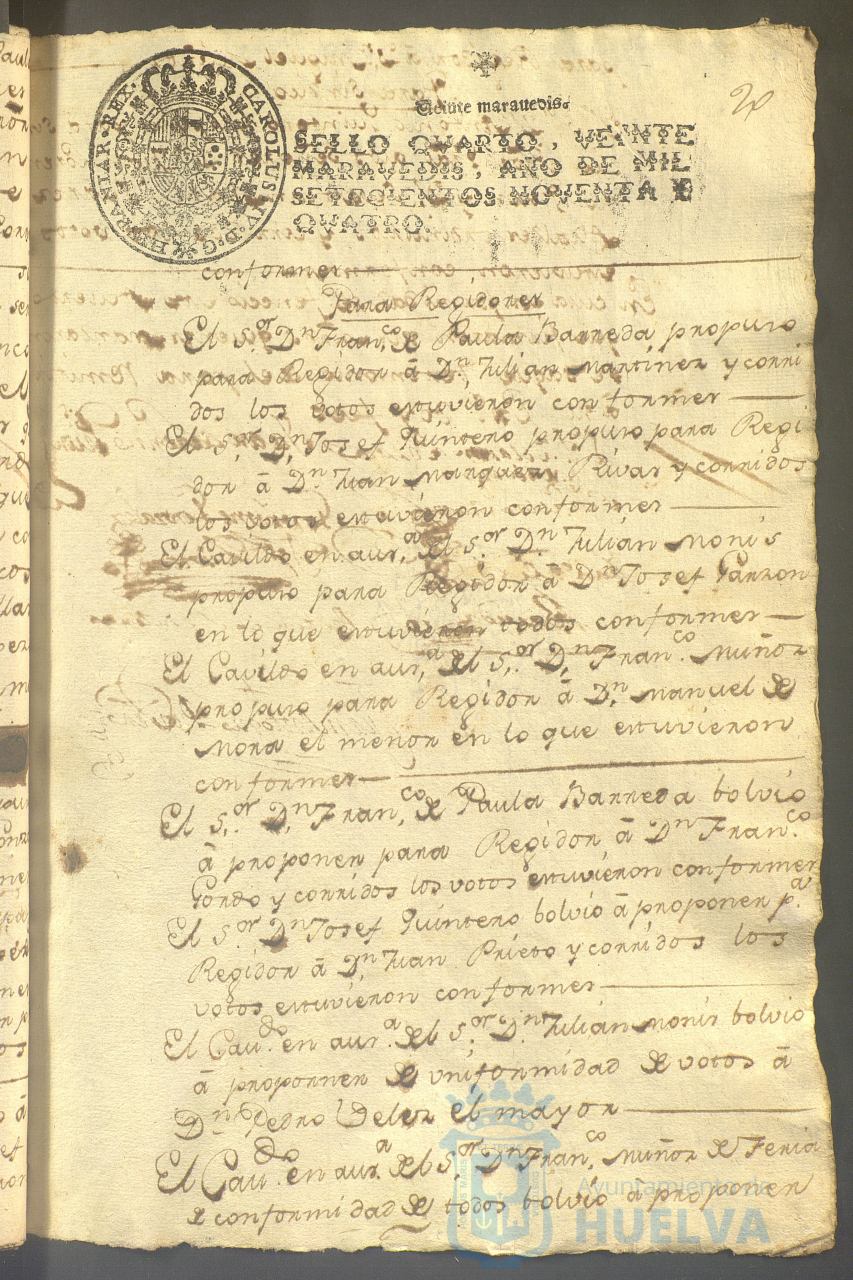 CAROLUS IV D G HISPANIAR REX
20
Veinte marauedis.
SELLO QVARTO, VEINTE
MARAVEDIS, AÑO DE MIL
SETECIENTOS NOVENTA E
QVATRO.
conformes
Para Regidores
El S.or Dn Fran.co de Paula Barreda propuso
para Regidor â Dn. Julián Martínez y corri
dos los votos estuvieron conformes
El S.r Dn Josef Quintero propuso para Regi
dor â Dn. Juan Marques Rivas y corridos
los votos estuvieron conformes
El Cavildo en aus.a del S.or Dn Julián Monis
propuso para Regidor â Dn Josef Garzon
en lo que estuvieron todos conformes
El Cavildo en aus.a del S.or Dn Fran.co Muñoz
propuso para Regidor â Dn. Manuel de
Mora el menor en lo que estuvieron
conformes
El S.or Dn Fran.co de Paula Barreda bolvio
â proponer para Regidor â Dn Fran.co
Gordo y corridos los votos estuvieron conformes
El S.or Dn Josef Quintero bolvio â proponer p.a
Regidor â Dn Juan Prieto y corridos los
votos estuvieron conformes
El Cav.do en aus.a del S.or Dn Julián Monis bolvio
â proponer de uniformidad de votos â
Dn Pedro Velez el mayor
El Cav.do en aus.a del S.or Dn Fran.co Muñoz de Feria
de conformidad de todos bolvio â proponer
Ayuntamiento de
HUELVA